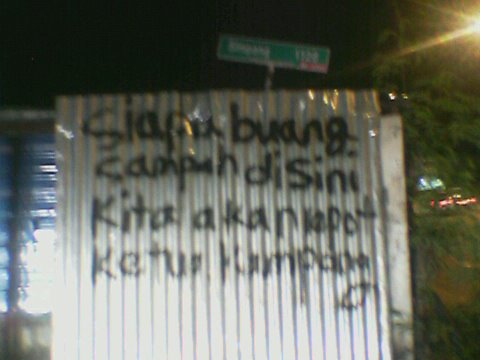 Siapa buang
sampah disini
Kita akan repot
Ketua Kampong